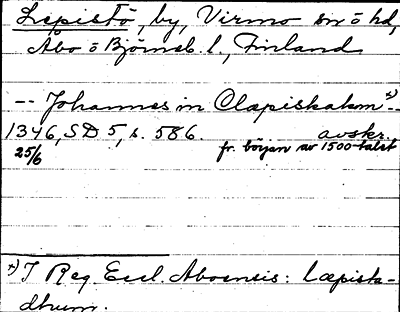 Lepistö, by, Virmo sn o hd,
Åbo o Björneb. l., Finland
-- Johannes in Clapiskakm x) --
1346, SD 5, s. 586. avskr.
25/6 fr. början av 1500-talet
x) I Reg. Eccl. Aboensis: læpisk-
dhum.